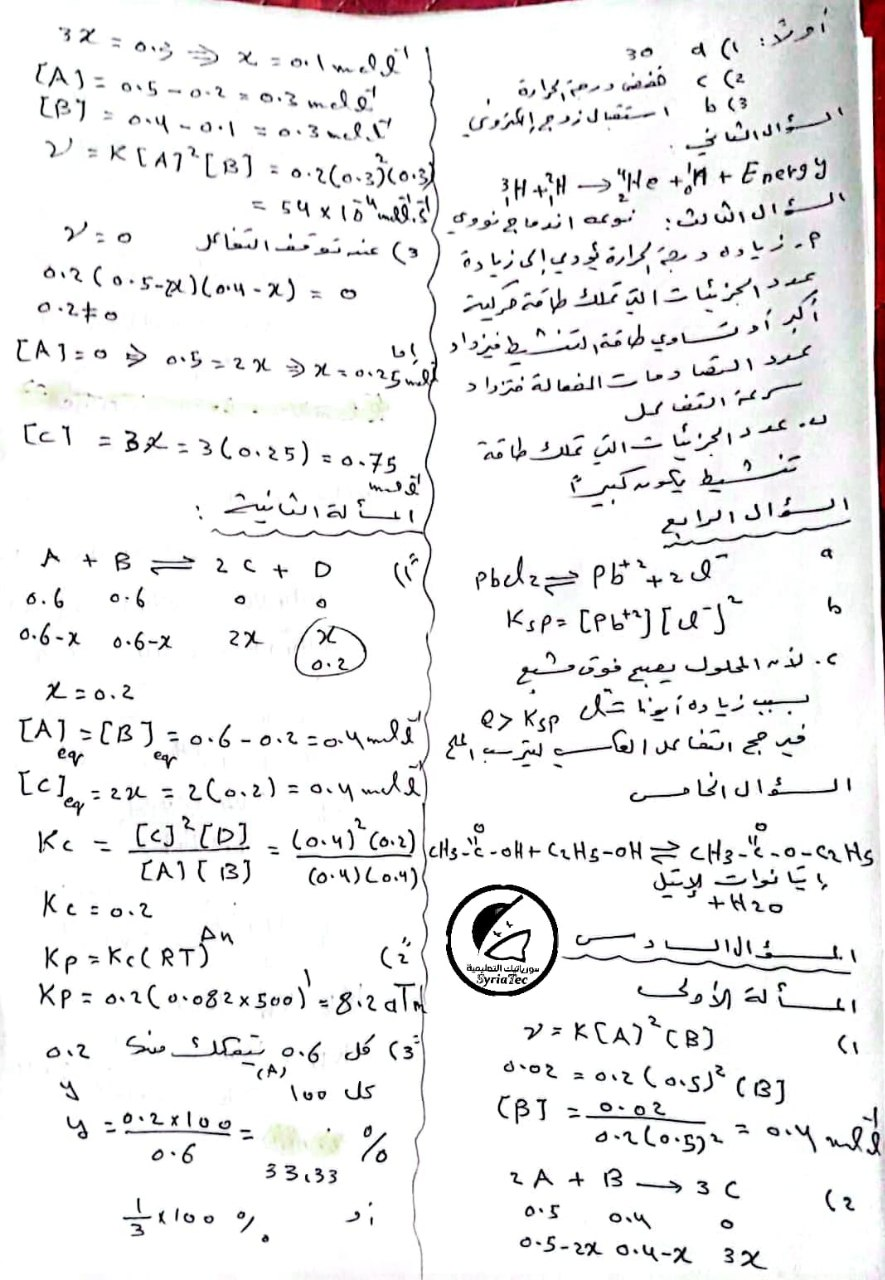 أولاً: 1) d 30
2) c خفض درجة الحرارة
3) b استقبال زوج إلكتروني
السؤال الثاني:
³₁H + ²₁H → ⁴₂He + ¹₀n + Energy
السؤال الثالث: نوعه اندماج نووي
a- زيادة درجة الحرارة يؤدي إلى زيادة
عدد الجزيئات التي تملك طاقة حركية
أكبر أو تساوي طاقة التنشيط فيزداد
عدد التصادمات الفعالة فتزداد
سرعة التفاعل
b. عدد الجزيئات التي تملك طاقة
تنشيط يكون كبيراً
السؤال الرابع
a PbCl2 ⇌ Pb⁺² + 2Cl⁻
b Ksp = [Pb⁺²][Cl⁻]²
c. لأن المحلول يصبح فوق مشبع
بسبب زيادة أيونات Cl⁻ Q > Ksp
فيرجح التفاعل العكسي ليترسب الملح
السؤال الخامس
CH3-C(=O)-OH + C2H5-OH ⇌ CH3-C(=O)-O-C2H5
إيتانوات الإيتيل
+ H2O
سورياتيك التعليمية
SyriaTec
السؤال السادس
المسألة الأولى
1) v = K[A]²[B]
0.02 = 0.2(0.5)²[B]
[B] = 0.02 / 0.2(0.5)2 = 0.4 mol l⁻¹
2) 2A + B → 3C
0.5 0.4 0
0.5-2x 0.4-x 3x
3x = 0.3 ⇒ x = 0.1 mol l⁻¹
[A] = 0.5 - 0.2 = 0.3 mol l⁻¹
[B] = 0.4 - 0.1 = 0.3 mol.l⁻¹
v = K[A]²[B] = 0.2(0.3)²(0.3)
= 54 × 10⁻⁴ mol.l⁻¹.s⁻¹
3) عند توقف التفاعل v = 0
0.2(0.5-2x)(0.4-x) = 0
0.2 ≠ 0
إما [A] = 0 ⇒ 0.5 = 2x ⇒ x = 0.25 mol l⁻¹
[C] = 3x = 3(0.25) = 0.75
mol l⁻¹
المسألة الثانية:
1) A + B ⇌ 2C + D
0.6 0.6 0 0
0.6-x 0.6-x 2x x
0.2
x = 0.2
[A]eq = [B]eq = 0.6 - 0.2 = 0.4 mol l⁻¹
[C]eq = 2x = 2(0.2) = 0.4 mol l⁻¹
Kc = [C]²[D] / [A][B] = (0.4)²(0.2) / (0.4)(0.4)
Kc = 0.2
2) Kp = Kc(RT)^Δn
Kp = 0.2(0.082×500)¹ = 8.2 atm
3) كل 0.6 (A) يتفكك منها 0.2
كل 100 y
y = 0.2×100 / 0.6 = %
33.33
أو 1/3 × 100 %